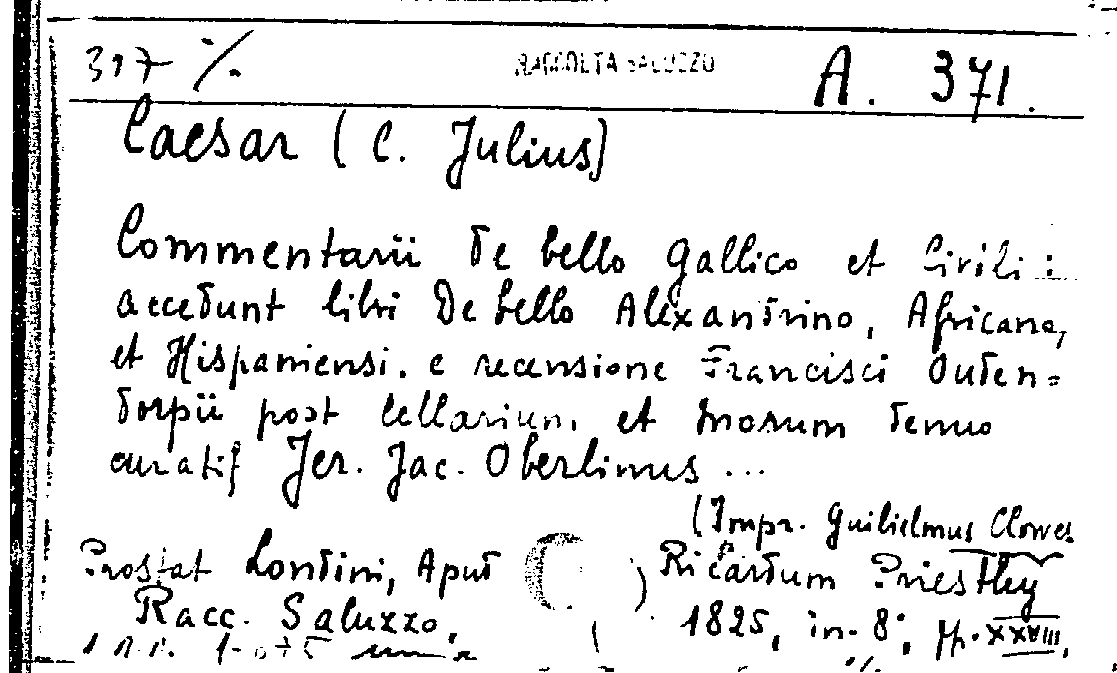 317 /.
RACCOLTA SALUZZO
A. 371.
Caesar (C. Julius)
Commentarii de bello Gallico et Civili :
accedunt libri De bello Alexandrino, Africano,
et Hispaniensi. e recensione Francisci Ouden=
dorpii post Cellarium et Morum denuo
curavit Jer. Jac. Oberlinus ...
(Impr. Guilielmus Clowes
Prostat Londini, Apud ) Ricardum Priestley
Racc. Saluzzo. 1825, in-8°, pp. XXVIII,